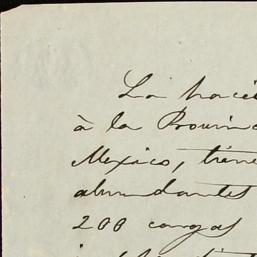 La haci
à la Provinc
Mexico, tiene
abundantes
200 cargas